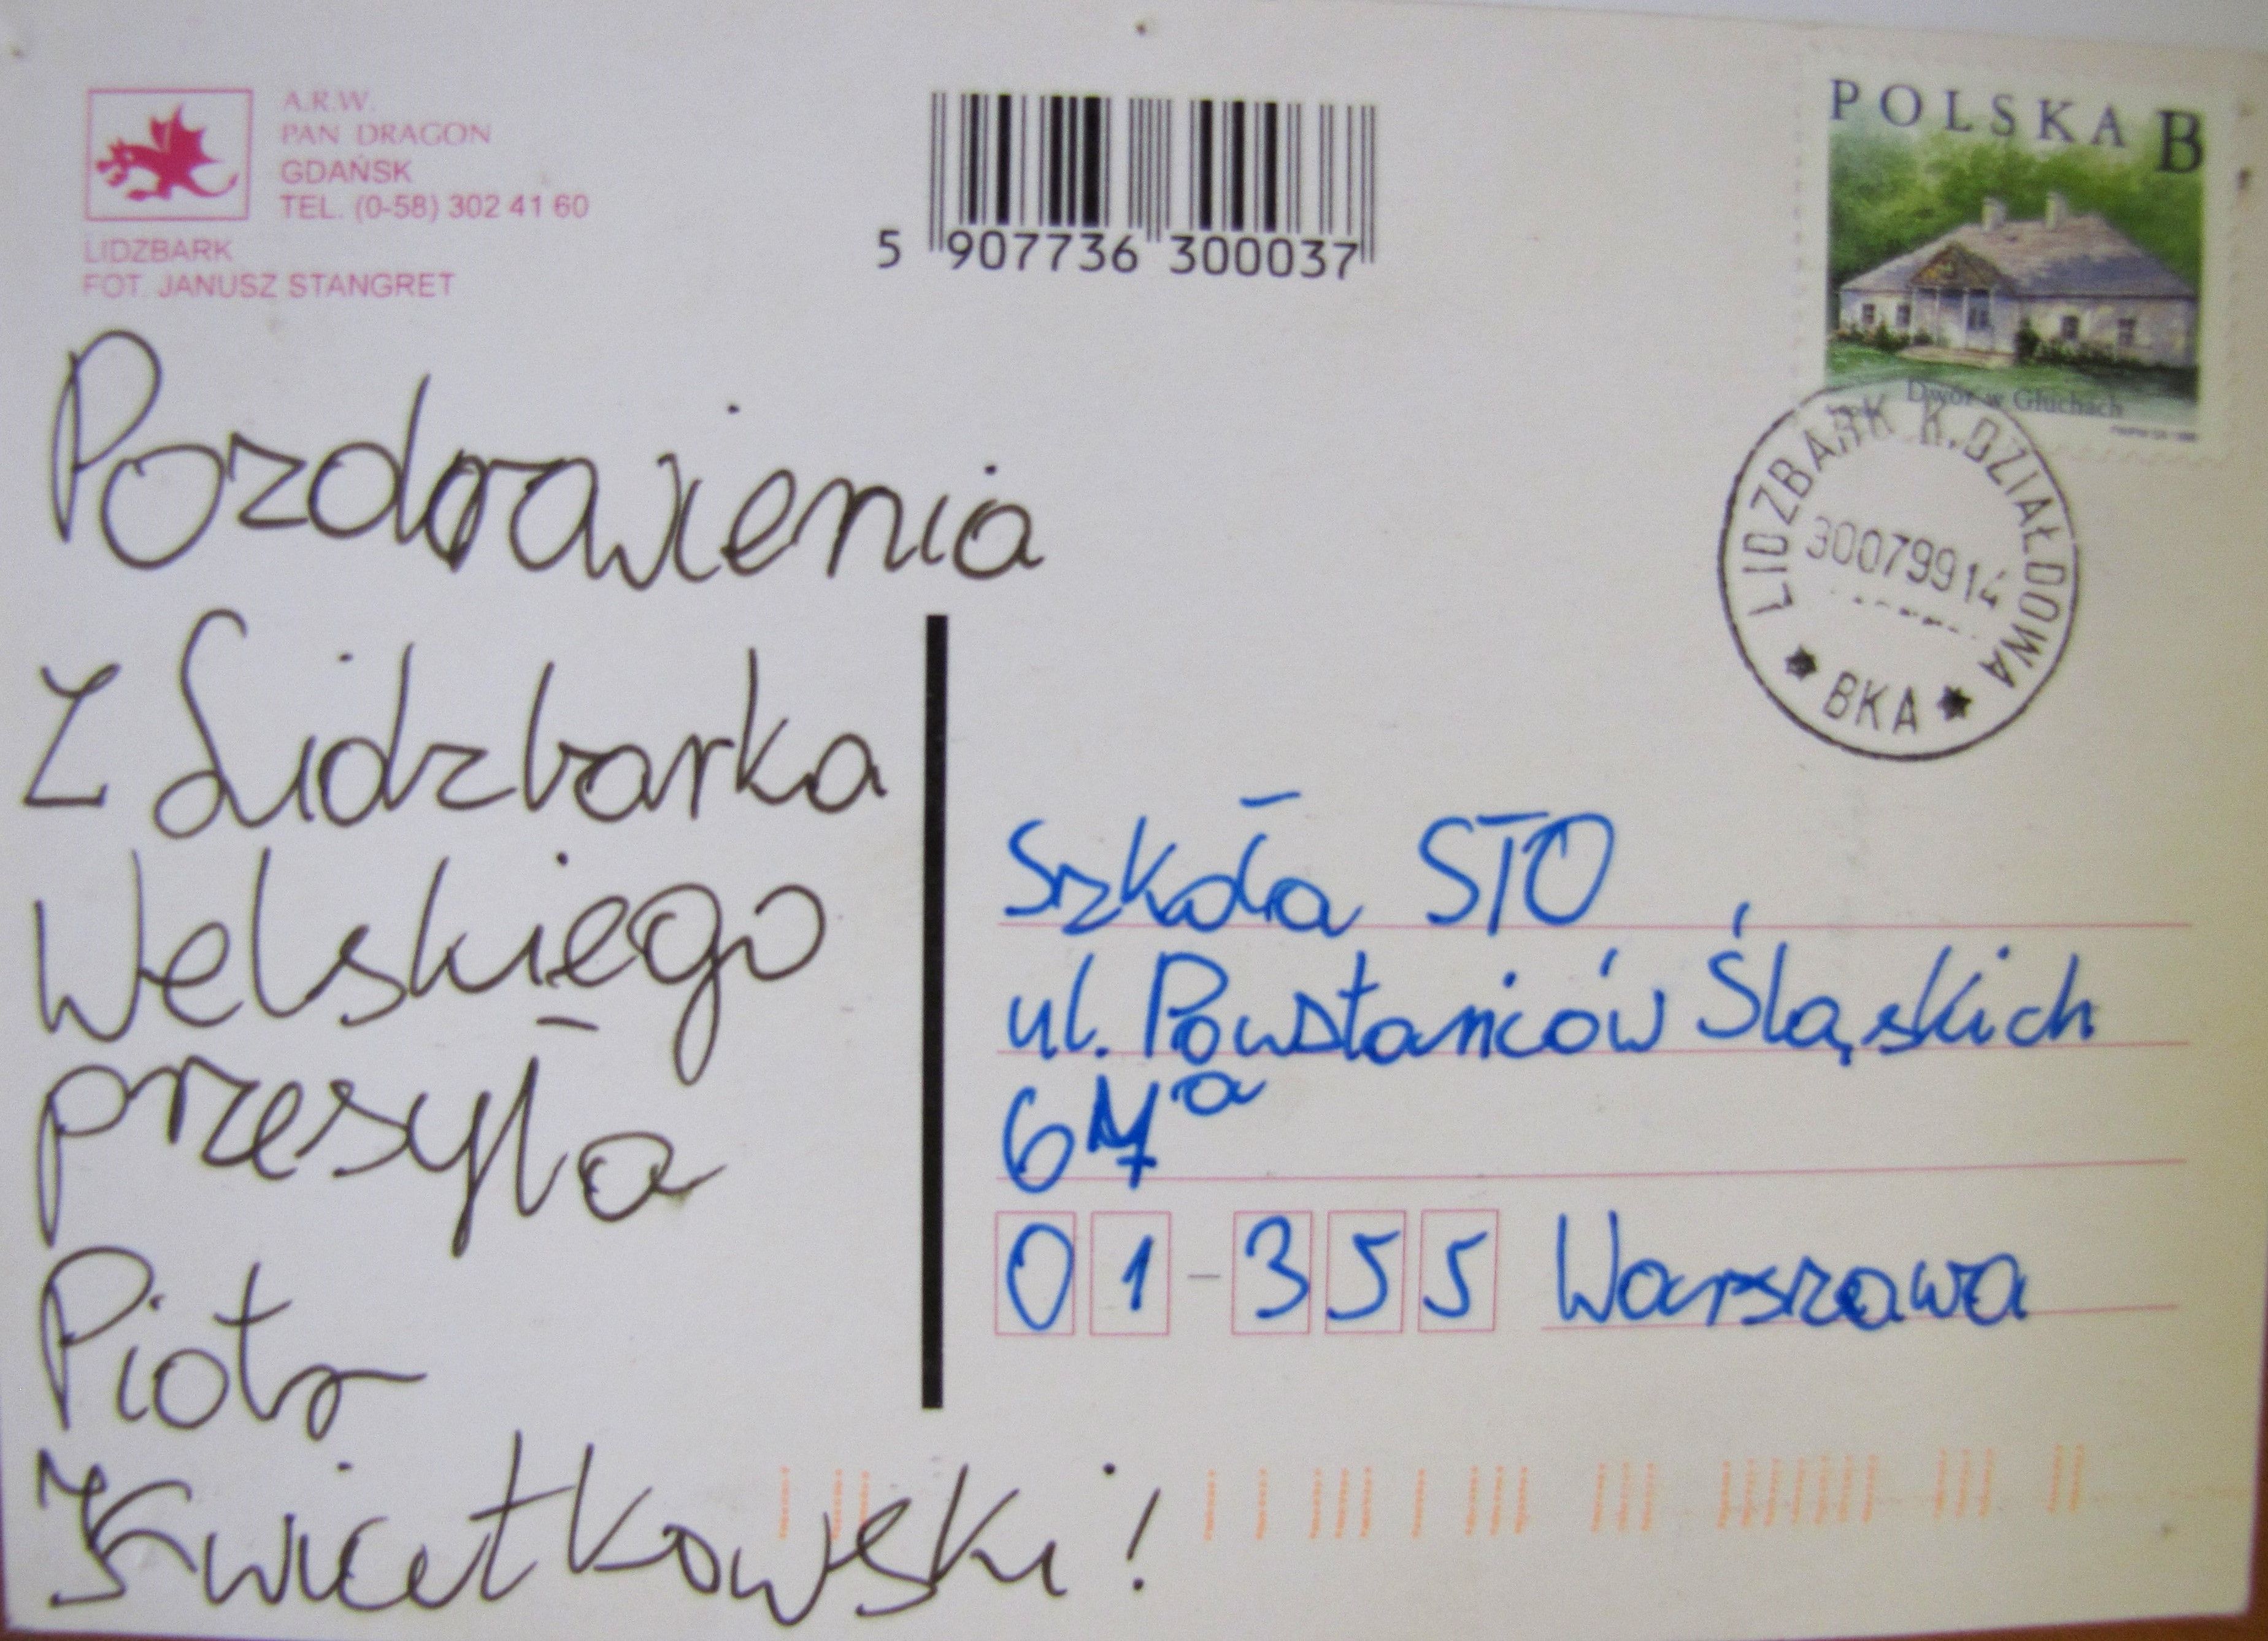 A.R.W.
PAN DRAGON
GDAŃSK
TEL. (0-58) 302 41 60
LIDZBARK
FOT. JANUSZ STANGRET
5 907736 300037
POLSKA B
Dwór w Głuchach
LIDZBARK K.DZIAŁDOWA
30079914
★ BKA ★
Pozdrowienia
Z Lidzbarka
Welskiego
przesyła
Piotr
Kwiatkowski!
Szkoła STO
ul. Powstańców Śląskich
67a
01-355 Warszawa